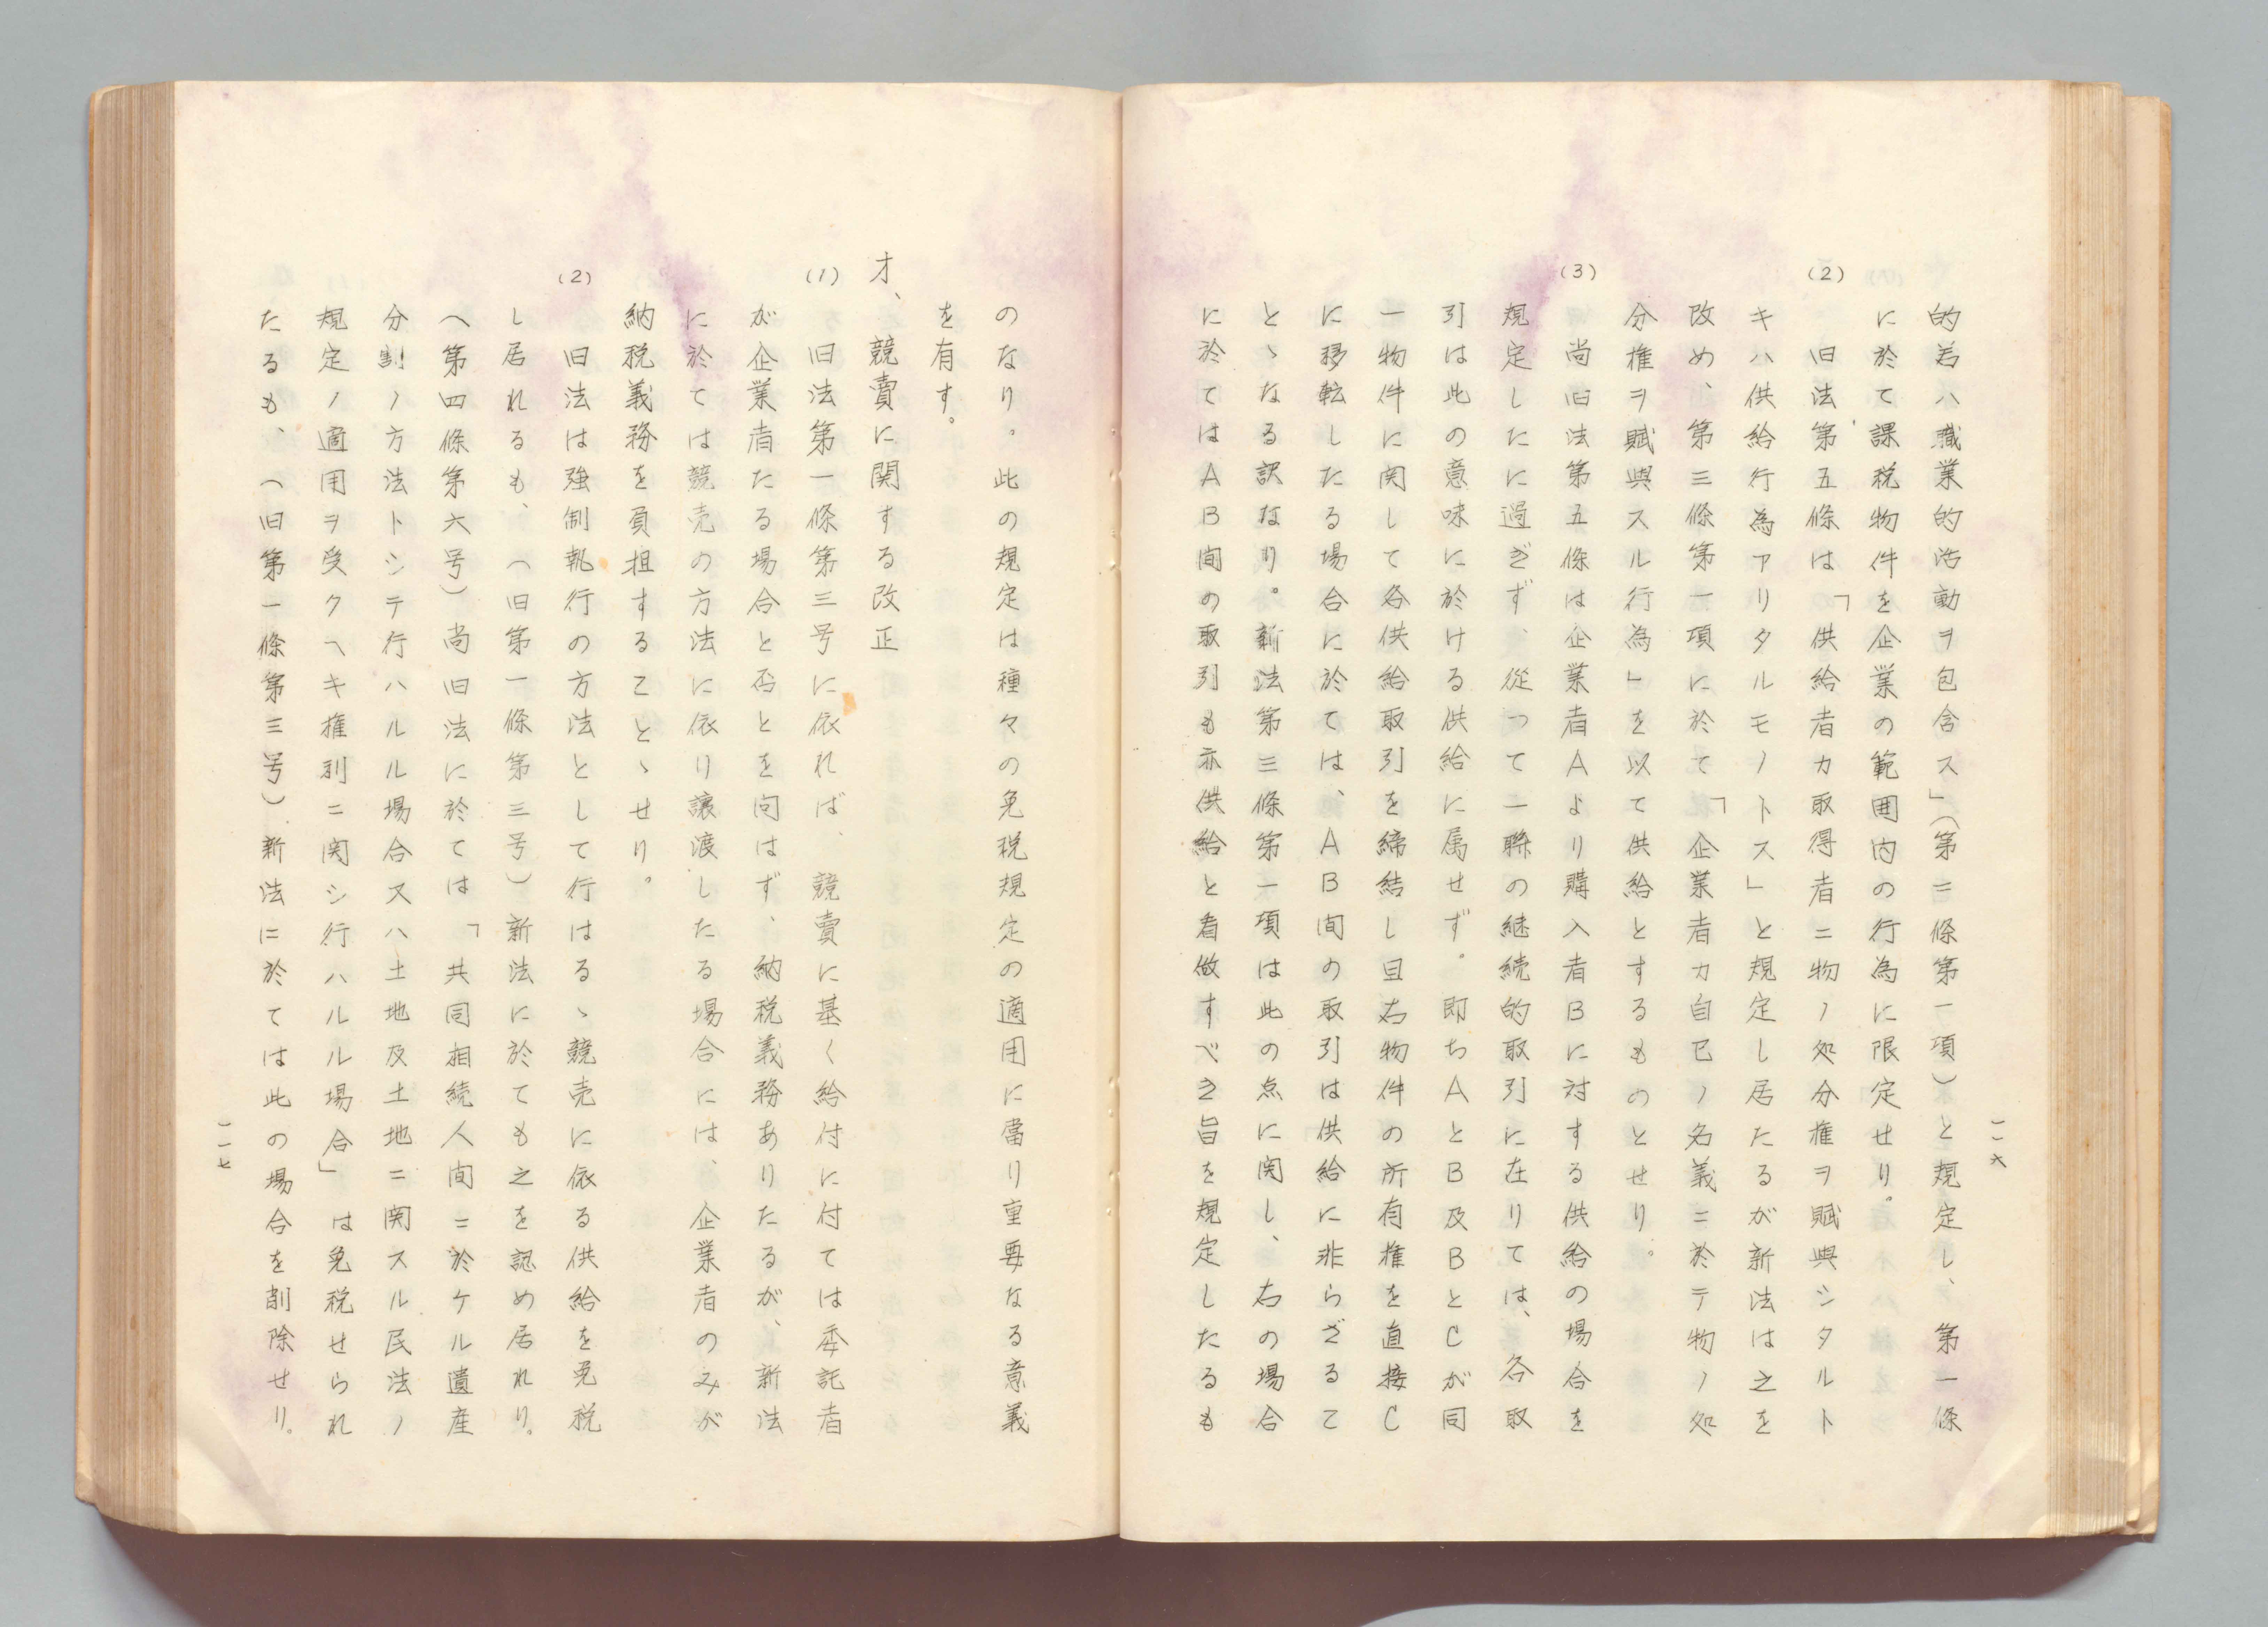 一一六
的若ハ職業的活動ヲ包含ス」（第二條第一項）と規定し、第一條
に於て課税物件を企業の範囲内の行為に限定せり。
(2) 旧法第五條は「供給者カ取得者ニ物ノ処分権ヲ賦與シタルト
キハ供給行為アリタルモノトス」と規定し居たるが新法は之を
改め、第三條第一項に於て「企業者カ自已ノ名義ニ於テ物ノ処
分権ヲ賦與スル行為」を以て供給とするものとせり。
(3) 尚旧法第五條は企業者Aより購入者Bに対する供給の場合を
規定したに過ぎず、從って一聯の継続的取引に在りては、各取
引は此の意味に於ける供給に属せず。即ちAとB及BとCが同
一物件に関して各供給取引を締結し且右物件の所有権を直接C
に移転したる場合に於ては、AB間の取引は供給に非らざるこ
とゝなる訳なり。新法第三條第一項は此の点に関し、右の場合
に於てはAB間の取引も亦供給と看做すべき旨を規定したるも
のなり。此の規定は種々の免税規定の適用に當り重要なる意義
を有す。
オ、競賣に関する改正
(1) 旧法第一條第三号に依れば、競賣に基く給付に付ては委託者
が企業者たる場合と否とを问はず、納税義務ありたるが、新法
に於ては競売の方法に依り譲渡したる場合には、企業者のみが
納税義務を負担することゝせり。
(2) 旧法は強制執行の方法として行はるゝ競売に依る供給を免税
し居れるも、（旧第一條第三号）新法に於ても之を認め居れり。
（第四條第六号）尚旧法に於ては「共同相続人间ニ於ケル遺産
分割ノ方法トシテ行ハルル場合又ハ土地及土地ニ関スル民法ノ
規定ノ適用ヲ受クヘキ権利ニ関シ行ハルル場合」は免税せられ
たるも、（旧第一條第三号）新法に於ては此の場合を削除せり。
一一七